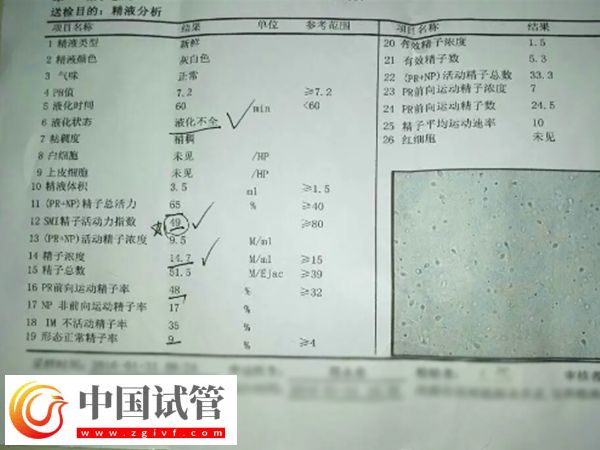 送检目的: 精液分析
项目名称 结果 单位 参考范围
1 精液类型 新鲜
2 精液颜色 灰白色
3 气味 正常
4 PH值 7.2 ≥7.2
5 液化时间 60 min <60
6 液化状态 液化不全
7 粘稠度 稍稠
8 白细胞 未见 /HP
9 上皮细胞 未见 /HP
10 精液体积 3.5 ml ≥1.5
11 (PR+NP)精子总活力 65 % ≥40
12 SMI精子活动力指数 49 ≥80
13 (PR+NP)活动精子浓度 9.5 M/ml
14 精子浓度 14.7 M/ml ≥15
15 精子总数 51.5 M/Ejac ≥39
16 PR前向运动精子率 48 % ≥32
17 NP 非前向运动精子率 17 %
18 IM 不活动精子率 35 %
19 形态正常精子率 9 % ≥4
项目名称 结果
20 有效精子浓度 1.5
21 有效精子数 5.3
22 (PR+NP)活动精子总数 33.3
23 PR前向运动精子浓度 7
24 PR前向运动精子数 24.5
25 精子平均运动速率 10
26 红细胞 未见
审核者
中国试管
www.zgivf.com